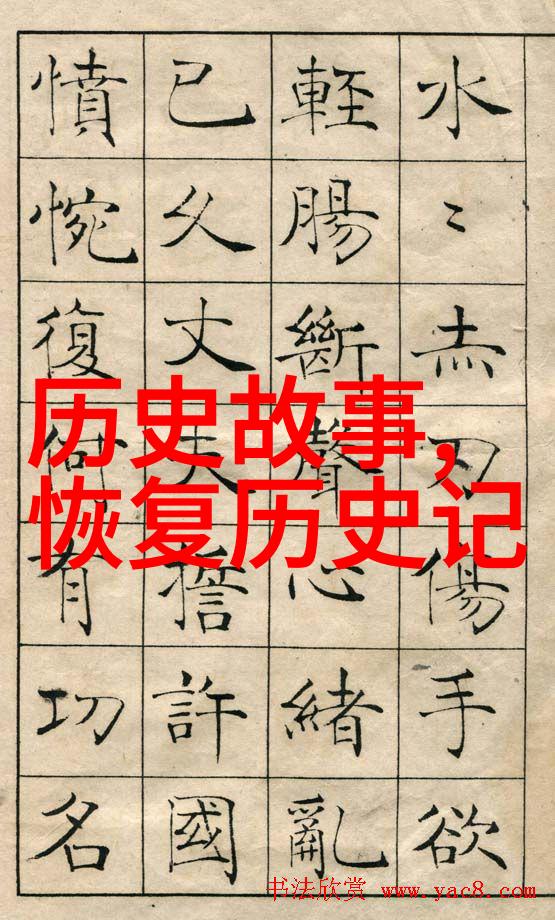 水〻赤刃傷手欲
輕腸斷聲心緒亂
已久丈夫誓許國
憤惋復何有功名
历史故事,
恢复历史记
书法欣赏 www.yac8.com